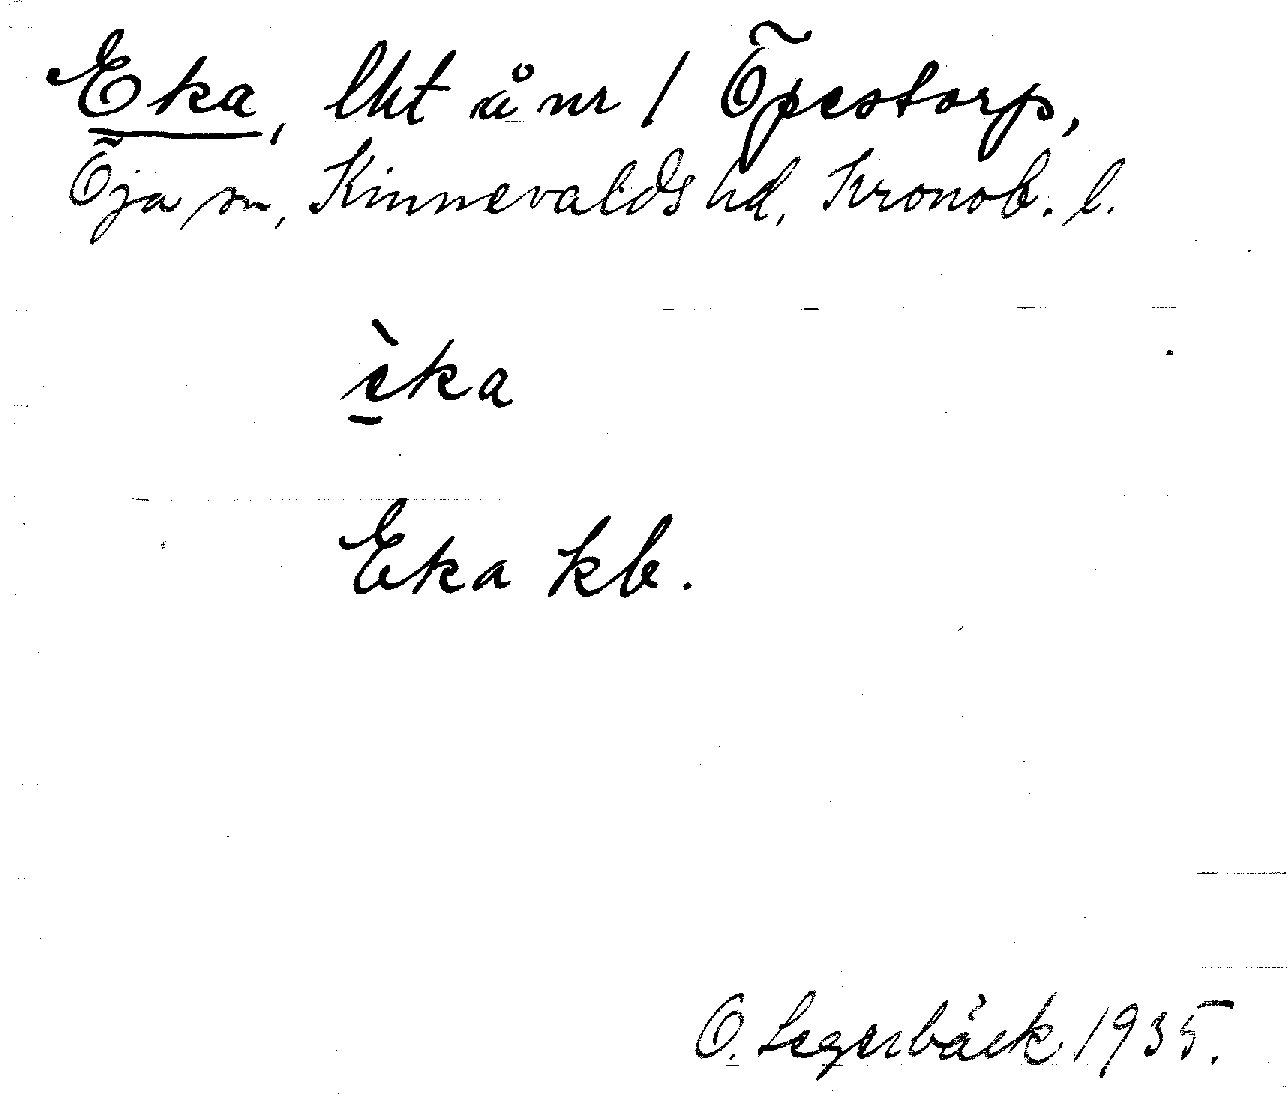 Eka, lht å nr 1 Öpestorp,
Öja sn, Kinnevalds hd, Kronob. l.
èka
Eka kb.
O. Segerbäck 1935.